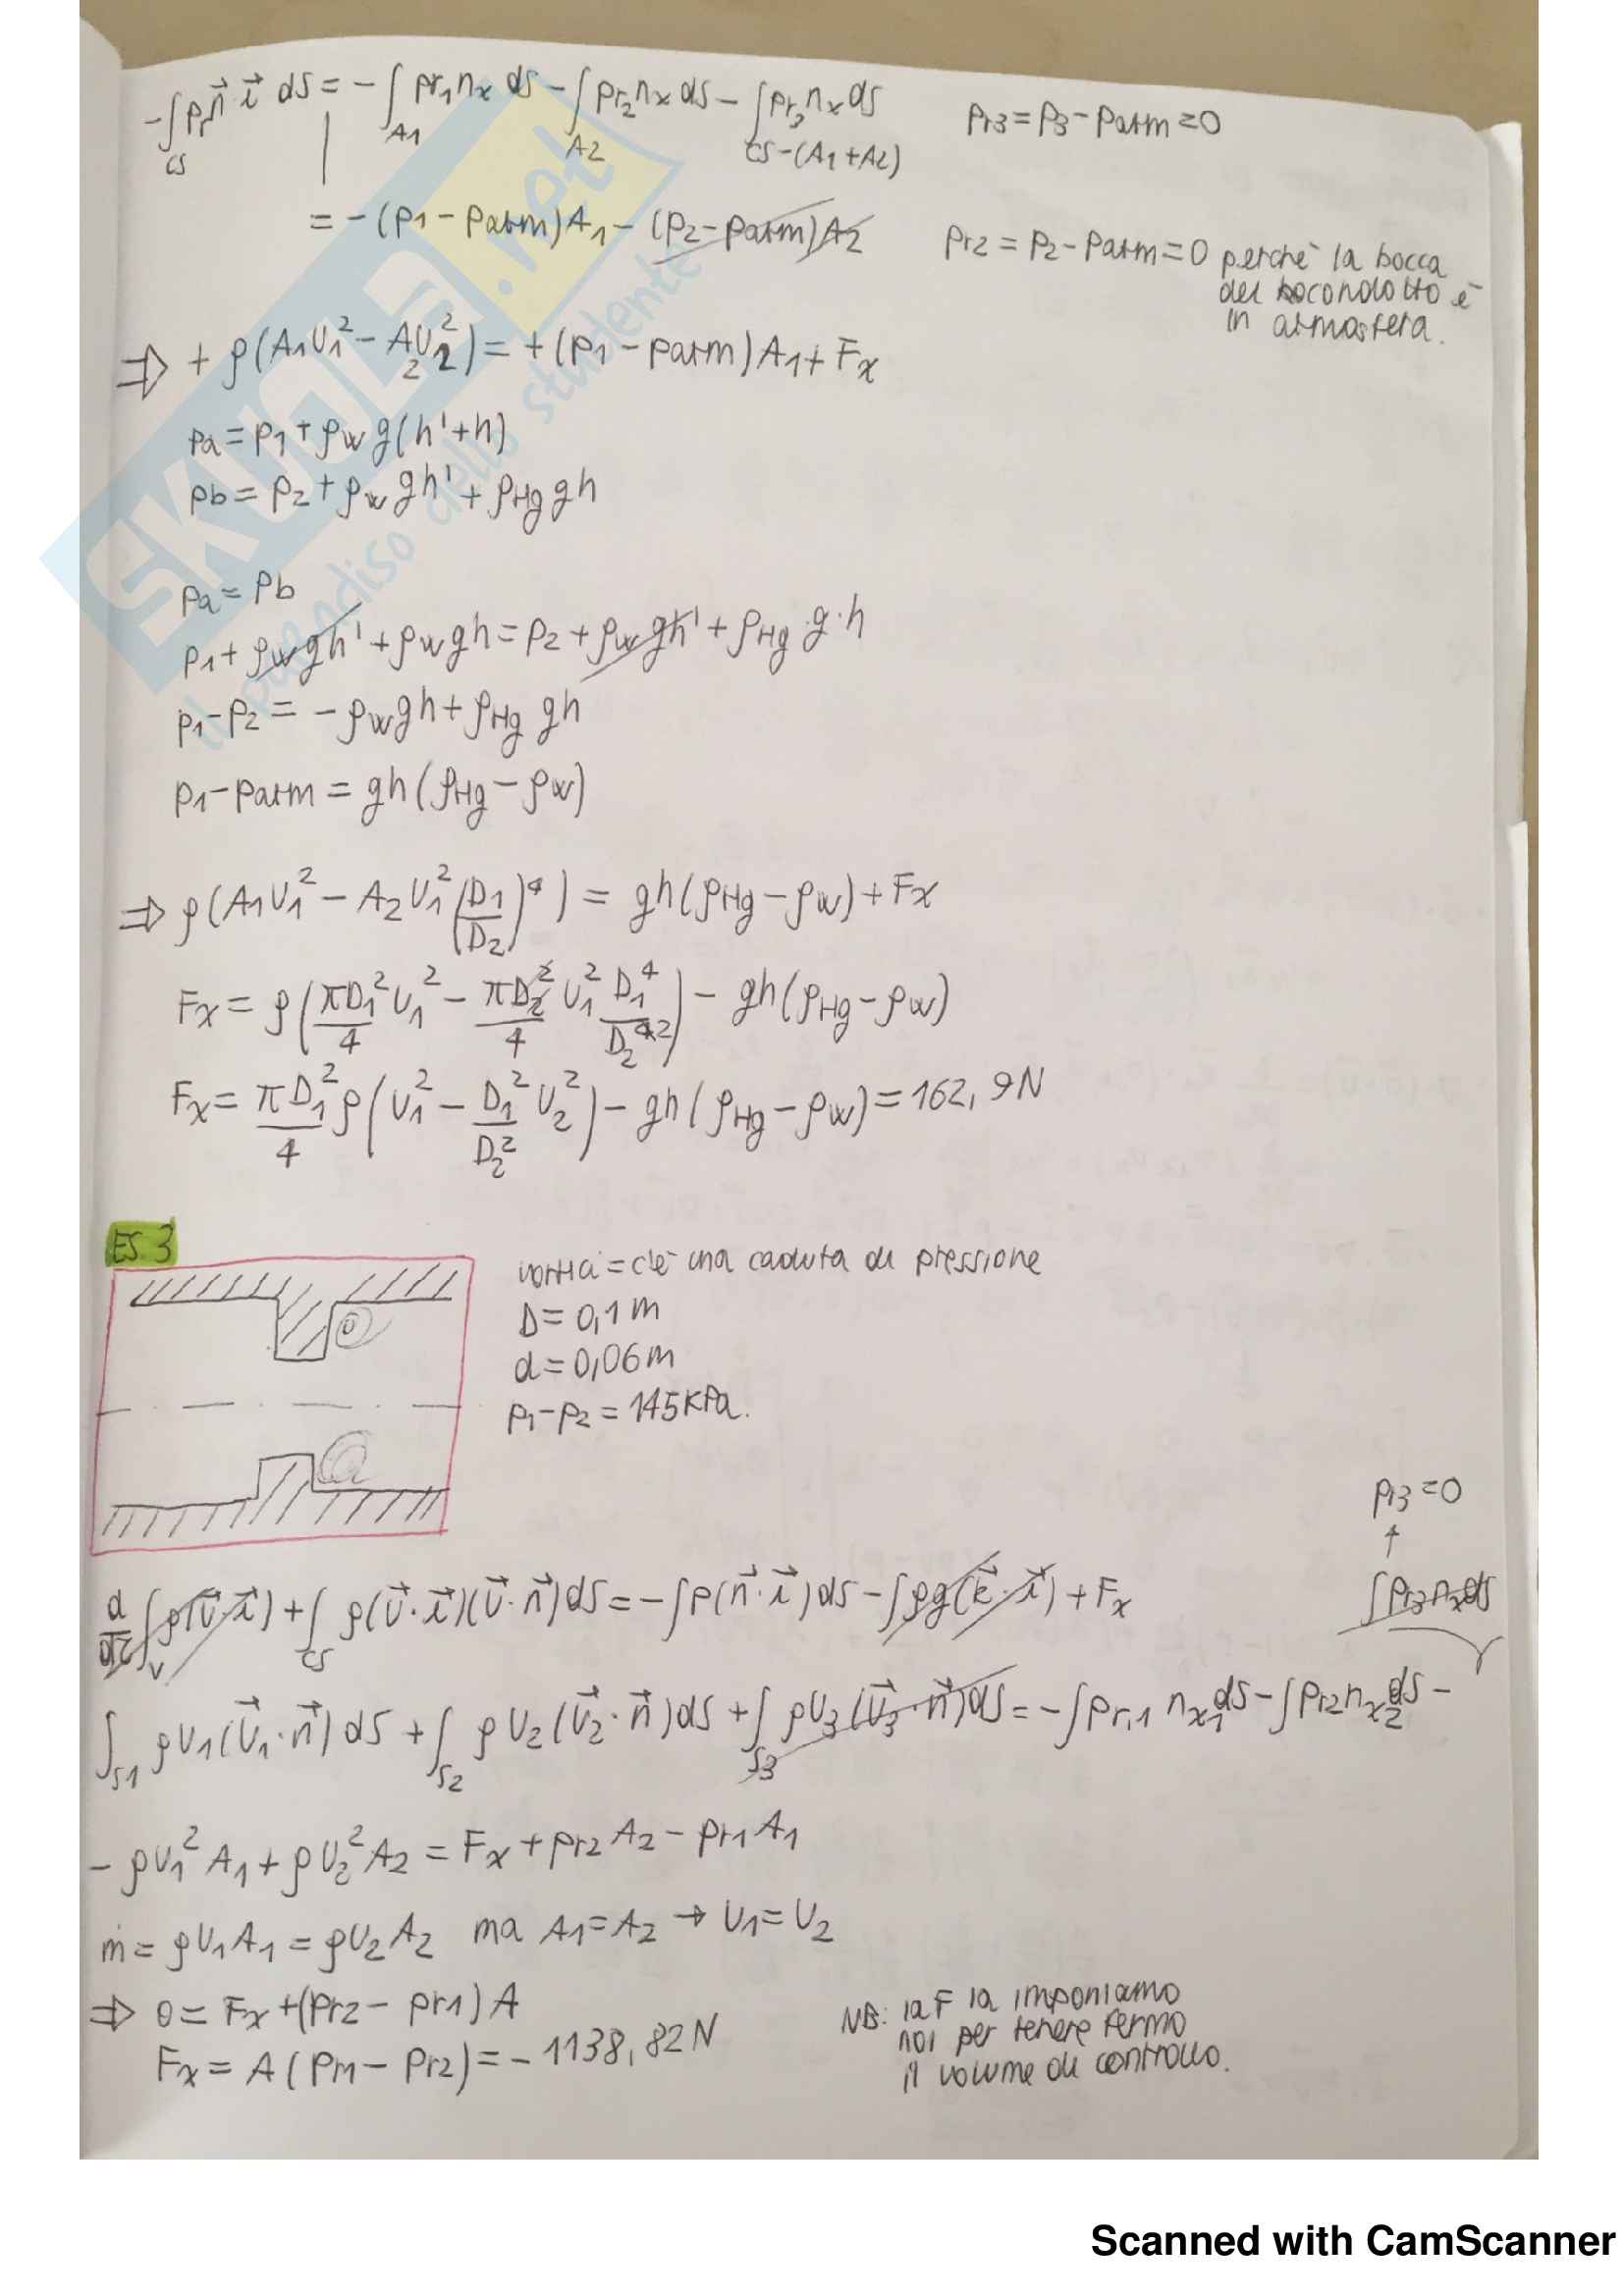 -∫_CS p_r n⃗·i⃗ dS = -∫_A1 pr₁ n_x dS - ∫_A2 pr₂ n_x dS - ∫_CS-(A₁+A₂) pr₃ n_x dS    pr3 = p3 - patm = 0
= -(p1 - patm)A₁ - (p2 - patm)A2    pr2 = p2 - patm = 0 perchè la bocca
del bocondotto è
in atmosfera.
⇒ + ρ(A₁U₁² - A₂U₂²) = +(p1 - patm)A₁ + Fx
pa = p1 + ρw g(h' + h)
pb = p2 + ρw gh' + ρHg gh
pa = pb
p1 + ρw gh' + ρw gh = p2 + ρw gh' + ρHg · g · h
p1 - p2 = - ρw gh + ρHg gh
p1 - patm = gh(ρHg - ρw)
⇒ ρ(A1U₁² - A2U₁²(D1/D2)⁴) = gh(ρHg - ρw) + Fx
Fx = ρ(πD₁²/4 U₁² - πD₂²/4 U₁² D₁⁴/D₂⁴²) - gh(ρHg - ρw)
Fx = πD₁²/4 ρ(U₁² - D₁²/D₂² U₂²) - gh(ρHg - ρw) = 162,9N
ES. 3
vortici = c'è una caduta di pressione
D = 0,1 m
d = 0,06 m
p1 - p2 = 145 kPa.
pr3 = 0
d/dt ∫_V ρ(U⃗·i⃗) + ∫_CS ρ(U⃗·i⃗)(U⃗·n⃗)dS = -∫p(n⃗·i⃗)dS - ∫ρg(k⃗·i⃗) + Fx    ∫pr3 nx dS
∫_S1 ρU1(U⃗₁·n⃗)dS + ∫_S2 ρU2(U⃗₂·n⃗)dS + ∫_S3 ρU3(U⃗₃·n⃗)dS = -∫pr,1 nx₁ dS - ∫pr2 nx₂ dS -
- ρU₁²A₁ + ρU₂²A₂ = Fx + pr2 A2 - pr1 A1
ṁ = ρU1A1 = ρU2A2 ma A1=A2 → U1=U2
⇒ 0 = Fx + (pr2 - pr1) A
Fx = A (pr1 - pr2) = - 1138,82N
NB: la F la imponiamo
noi per tenere fermo
il volume di controllo.
SKUOLA.net
il paradiso dello studente
Scanned with CamScanner